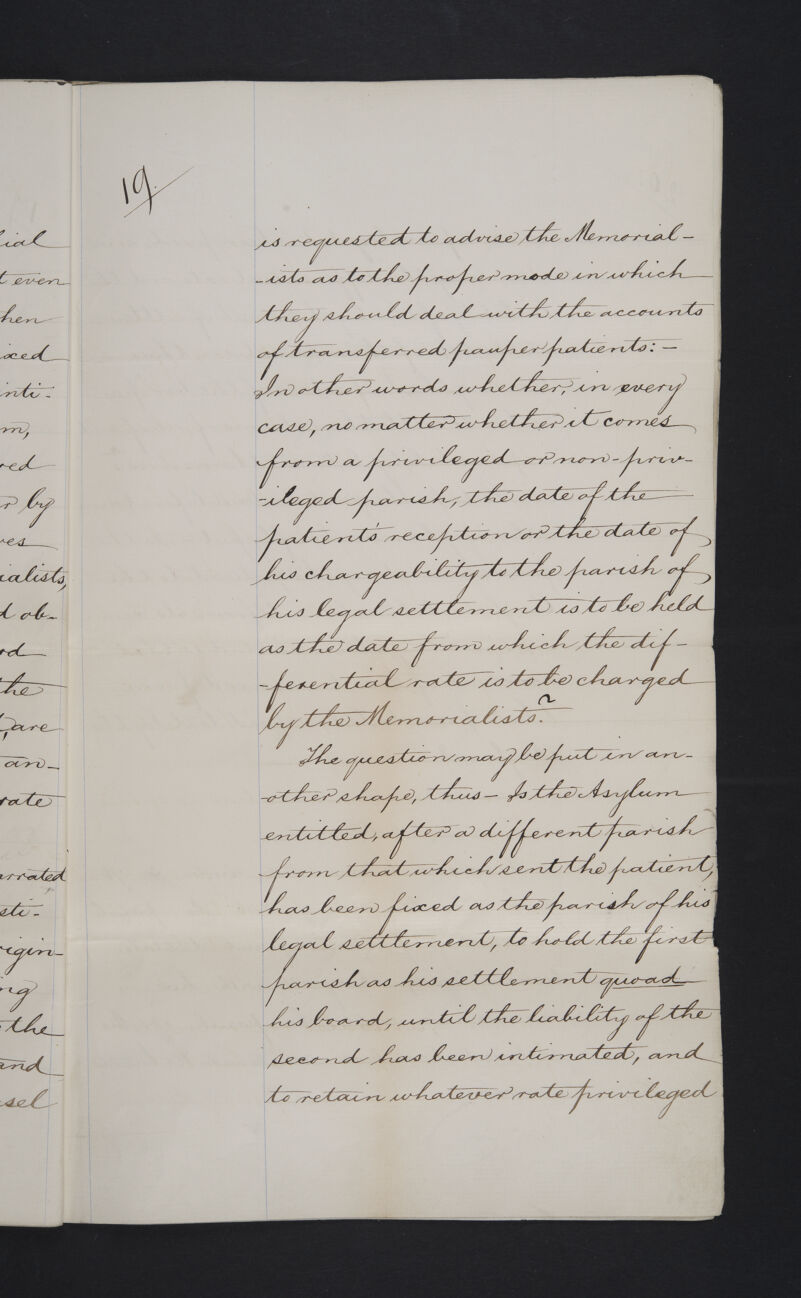 19.
is requested to advise the Memorial-
-ists as to the proper mode in which
they should deal with the accounts
of transferred pauper patients:-
In other words whether, in every
case, no matter whether it comes
from a privileged or non-priv-
-ileged parish, the date of the
patient's reception or the date of
his chargeability to the parish of
his legal settlement is to be held
as the date from which the dif-
-ferential rate is to be charged
by the Memorialists?
The question may be put in an-
-other shape, thus - Is the Asylum
entitled, after a different parish
from that which sent the patient,
has been fixed as the parish of his
legal settlement, to hold the first
parish as his settlement quoad
his board, until the liability of the
second has been intimated, and
to retain whatever rate privileged
even
hen
ixed
inti-
m,
red
r by
ves
ialists,
d ob-
rd
the
are
an-
rate
arrated
sti-
rigin-
ng
the
and
sel